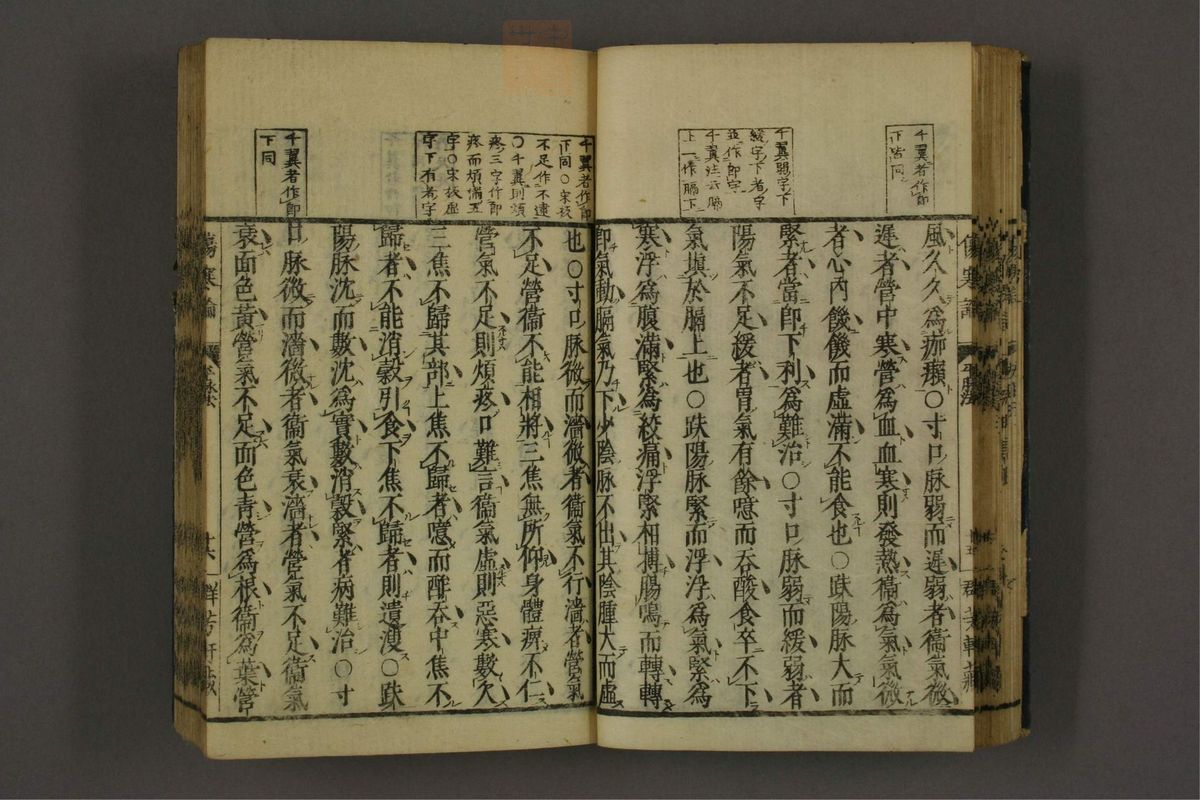 千翼者作即
下皆同
千翼弱字下
緩字下者字
並作即字
千翼注云膈
上一作膈下
風久久為痂癩○寸口脉弱而遲弱者衞氣微
遲者營中寒營為血血寒則發熱衞為氣氣微
者心內饑饑而虛滿不能食也○趺陽脉大而
緊者當即下利為難治○寸口脉弱而緩弱者
陽氣不足緩者胃氣有餘噫而吞酸食卒不下
氣塡於膈上也○趺陽脉緊而浮浮為氣緊為
寒浮為腹滿緊為絞痛浮緊相搏腸鳴而轉轉
即氣動膈氣乃下少陰脉不出其陰腫大而虛
千翼者作即
下同○宋板
不足作不逮
○千翼則煩
疼三字作即
疼而煩滿五
字○宋板虛
字下有者字
也○寸口脉微而濇微者衞氣不行濇者營氣
不足營衞不能相將三焦無所仰身體痹不仁
營氣不足則煩疼口難言衞氣虛則惡寒數欠
三焦不歸其部上焦不歸者噫而酢吞中焦不
歸者不能消穀引食下焦不歸者則遺溲○趺
陽脉沈而數沈為實數消穀緊者病難治○寸
千翼者作即
下同
口脉微而濇微者衞氣衰濇者營氣不足衞氣
衰面色黃營氣不足面色青營為根衞為葉營
傷寒論
平脉法
十六